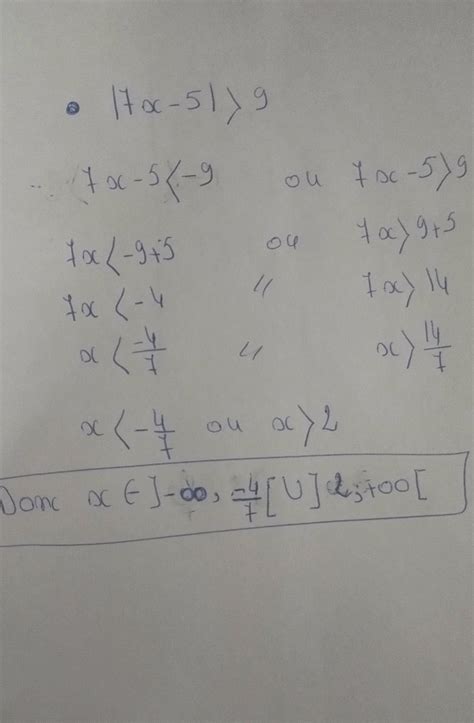 • |7x-5|>9
7x-5<-9 ou 7x-5>9
7x<-9+5 ou 7x>9+5
7x<-4 // 7x>14
x<-4/7 // x>14/7
x<-4/7 ou x>2
Donc x∈]-∞, -4/7[U]2;+∞[